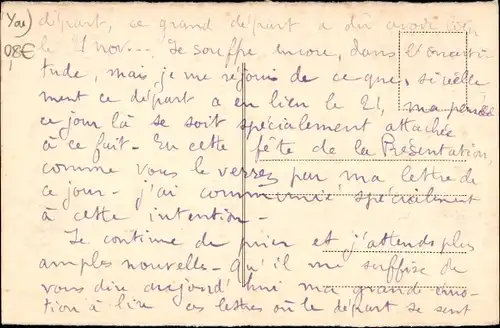 You)
08€
départ, ce grand départ a dû avoir lieu
le 21 nov... Je souffre encore, dans l'incerti-
tude, mais je me réjouis de ce que, si réelle-
ment ce départ a eu lieu le 21, ma pensée
ce jour là se soit spécialement attachée
à ce fait - En cette fête de la Présentation,
comme vous le verrez par ma lettre de
ce jour - j'ai communié spécialement
à cette intention -
Je continue de prier et j'attends plus
amples nouvelles - Qu'il me suffise de
vous dire aujourd'hui ma grande émo-
tion à lire ces lettres où le départ se sent